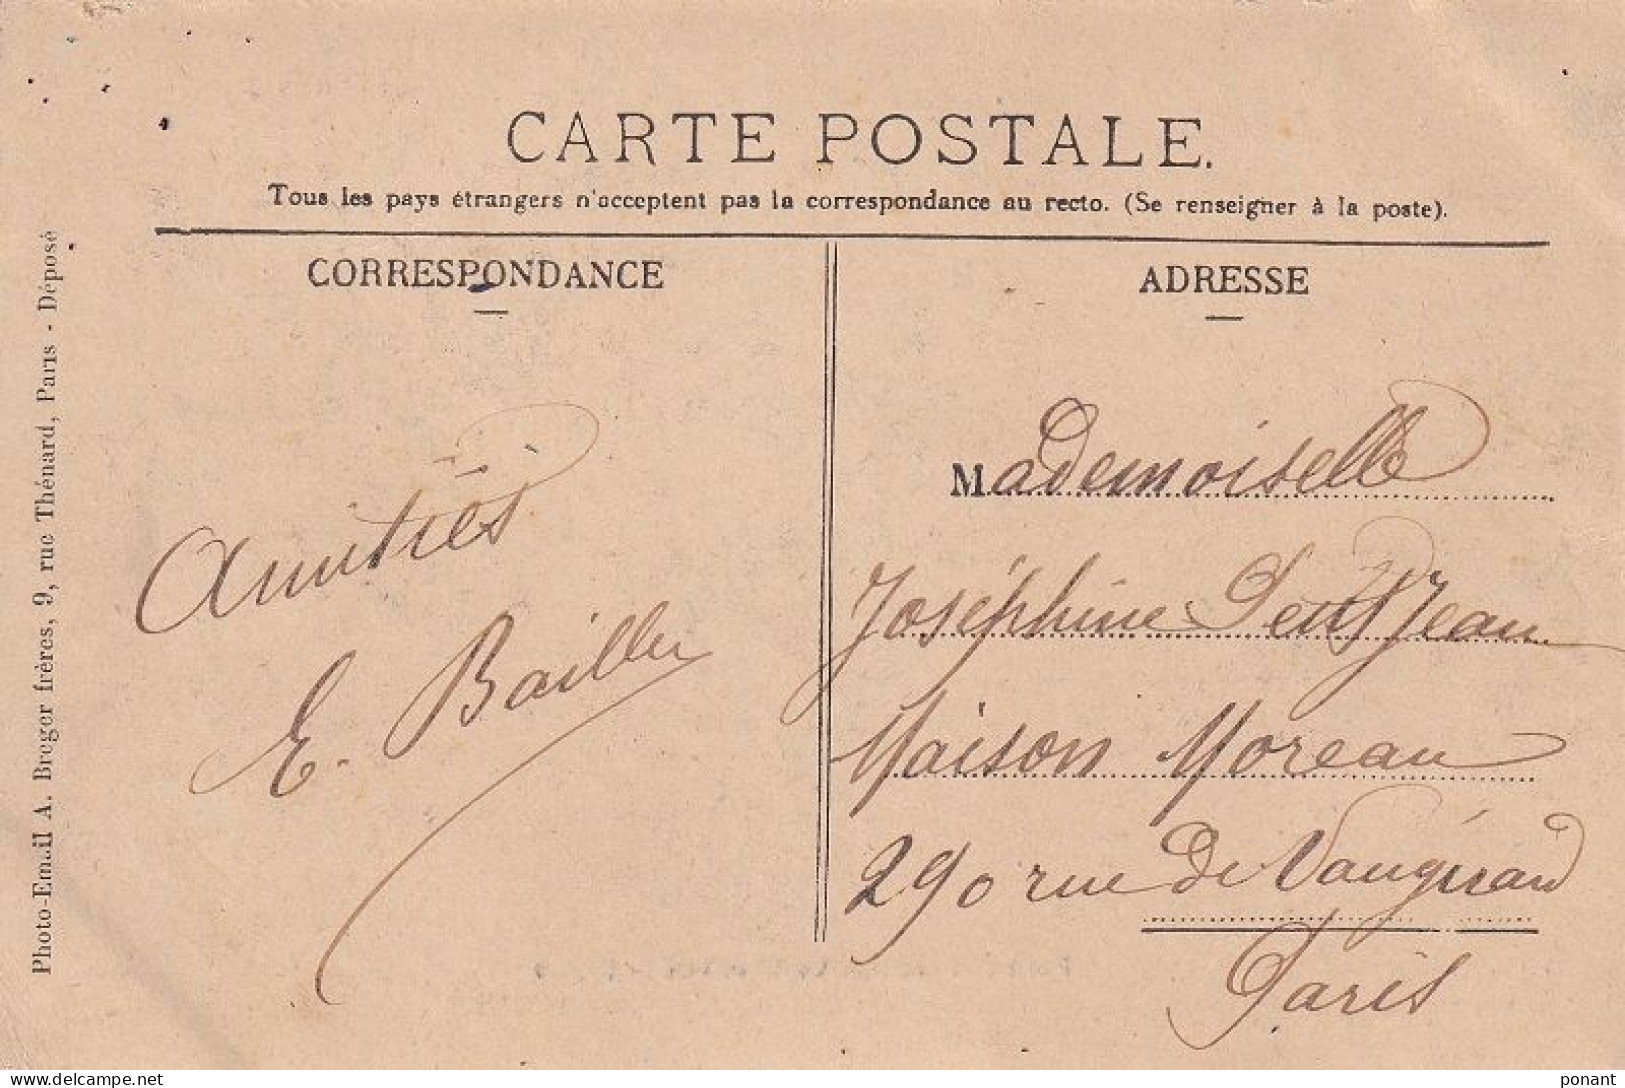 CARTE POSTALE.
Tous les pays étrangers n'acceptent pas la correspondance au recto. (Se renseigner à la poste).
CORRESPONDANCE
Amitiés
E. Bailler
ADRESSE
Mademoiselle
Joséphine PetitJean
Maison Moreau
290 rue de Vaugirard
Paris
Photo-Email A. Breger frères, 9, rue Thénard, Paris - Déposé
www.delcampe.net
ponant